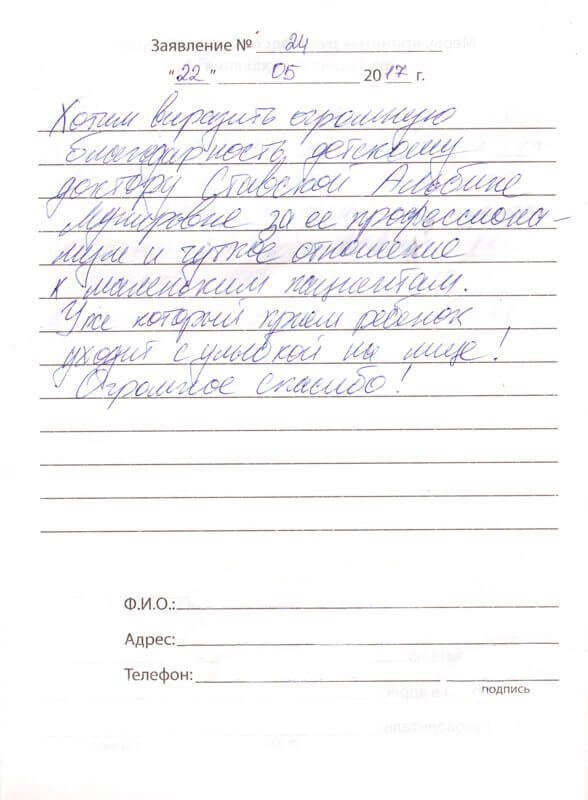 Заявление № 24
"22" 05 2017 г.
Хотим выразить огромную
благодарность детскому
доктору Ставской Альбине
за ее профессиона-
лизм и чуткое отношение
к маленьким пациентам.
Уже который прием ребенок
уходит с улыбкой на лице!
Огромное спасибо!
Ф.И.О.:
Адрес:
Телефон:
подпись